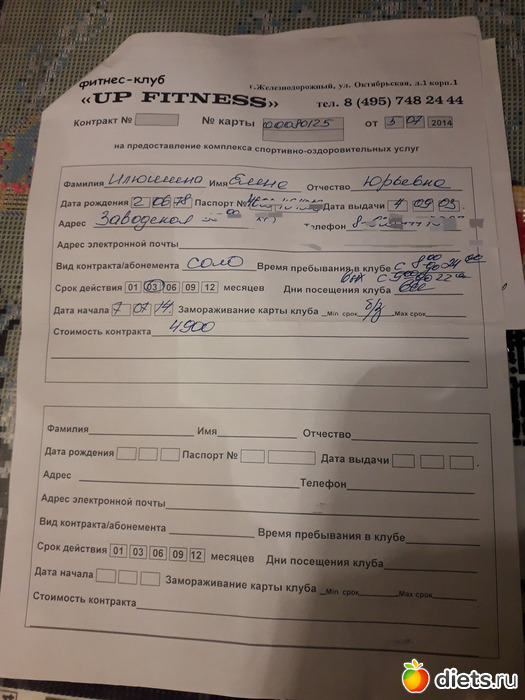 фитнес-клуб
г.Железнодорожный, ул. Октябрьская, д.1 корп.1
«UP FITNESS» тел. 8 (495) 748 24 44
Контракт № № карты 00080125 от 5 07 2014
на предоставление комплекса спортивно-оздоровительных услуг
Фамилия Илюшина Имя Елена Отчество Юрьевна
Дата рождения 2 06 78 Паспорт № Дата выдачи 4 09 03
Адрес Заводская Телефон 8-
Адрес электронной почты
Вид контракта/абонемента соло Время пребывания в клубе с 8 00 до 24 00
Срок действия 01 03 06 09 12 месяцев Дни посещения клуба все
Дата начала 7 07 14 Замораживание карты клуба Min срок б/з Max срок
Стоимость контракта 4900
Фамилия Имя Отчество
Дата рождения Паспорт № Дата выдачи .
Адрес Телефон
Адрес электронной почты
Вид контракта/абонемента Время пребывания в клубе
Срок действия 01 03 06 09 12 месяцев Дни посещения клуба
Дата начала Замораживание карты клуба Min срок Max срок
Стоимость контракта
diets.ru